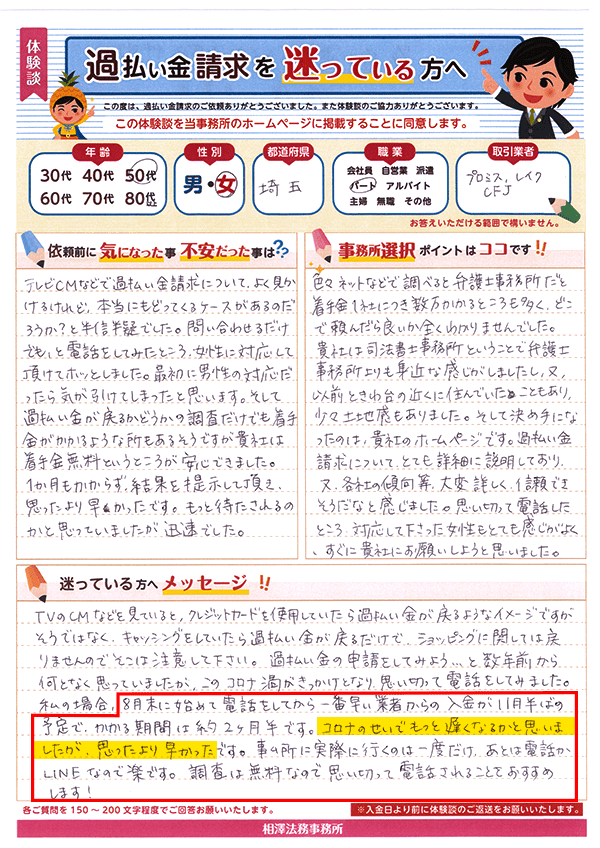 体験談
過払い金請求を 迷っている 方へ
この度は、過払い金請求のご依頼ありがとうございました。また体験談のご協力ありがとうございます。
この体験談を当事務所のホームページに掲載することに同意します。
年齢
30代 40代 50代
60代 70代 80代
性別
男・女
都道府県
埼玉
職業
会社員 自営業 派遣
パート アルバイト
主婦 無職 その他
取引業者
プロミス、レイク
CFJ
お答えいただける範囲で構いません。
依頼前に 気になった事 不安だった事は??
テレビCMなどで過払い金請求について、よく見か
けるけれど、本当にもどってくるケースがあるのだ
ろうか?と半信半疑でした。問い合わせるだけ
でも、と電話をしてみたところ、女性に対応して
頂けてホッとしました。最初に男性の対応だ
ったら気が引けてしまったと思います。そして
過払い金が戻るかどうかの調査だけでも着手
金がかかるような所もあるそうですが貴社は
着手金無料というところが安心できました。
1か月もかからず、結果を提示して頂き、
思ったより早かったです。もっと待たされるの
かと思っていましたが迅速でした。
事務所選択 ポイントは ココです!!
色々ネットなどで調べると弁護士事務所だと
着手金1社につき数万かかるところも多く、どこ
で頼んだら良いか全くわかりませんでした。
貴社は司法書士事務所ということで弁護士
事務所よりも身近な感じがしましたし、又、
以前ときわ台の近くに住んでいたこともあり、
少々土地感もありました。そして決め手にな
ったのは、貴社のホームページです。過払い金
請求について、とても詳細に説明しており、
又、各社の傾向等、大変詳しく、信頼でき
そうだなと感じました。思い切って電話した
ところ、対応して下さった女性もとても感じがよく
、すぐに貴社にお願いしようと思いました。
迷っている方へ メッセージ !!
TVのCMなどを見ていると、クレジットカードを使用していたら過払い金が戻るようなイメージですが
そうではなく、キャッシングをしていたら過払い金が戻るだけで、ショッピングに関しては戻
りませんのでそこは注意して下さい。過払い金の申請をしてみよう…と数年前から
何となく思っていましたが、このコロナ渦がきっかけとなり、思い切って電話をしてみました。
私の場合、8月末に始めて電話をしてから一番早い業者からの入金が11月半ばの
予定で、かかる期間は約2ヶ月半です。コロナのせいでもっと遅くなるかと思いま
したが、思ったより早かったです。事ム所に実際に行くのは一度だけ、あとは電話か
LINEなので楽です。調査は無料なので思い切って電話されることをおすすめ
します!
各ご質問を150〜200文字程度でご回答お願いいたします。
※入金日より前に体験談のご返送をお願いいたします。
相澤法務事務所